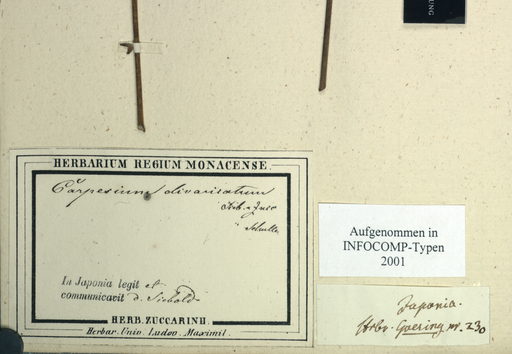 RING
HERBARIUM REGIUM MONACENSE.
Carpesium divaricatum
Sieb. & Zucc
In Japonia legit et
communicavit d. Siebold
HERB. ZUCCARINII.
Herbar. Univ. Ludov. Maximil.
Aufgenommen in
INFOCOMP-Typen
2001
Japonia.
Herb. Goering nr. 230